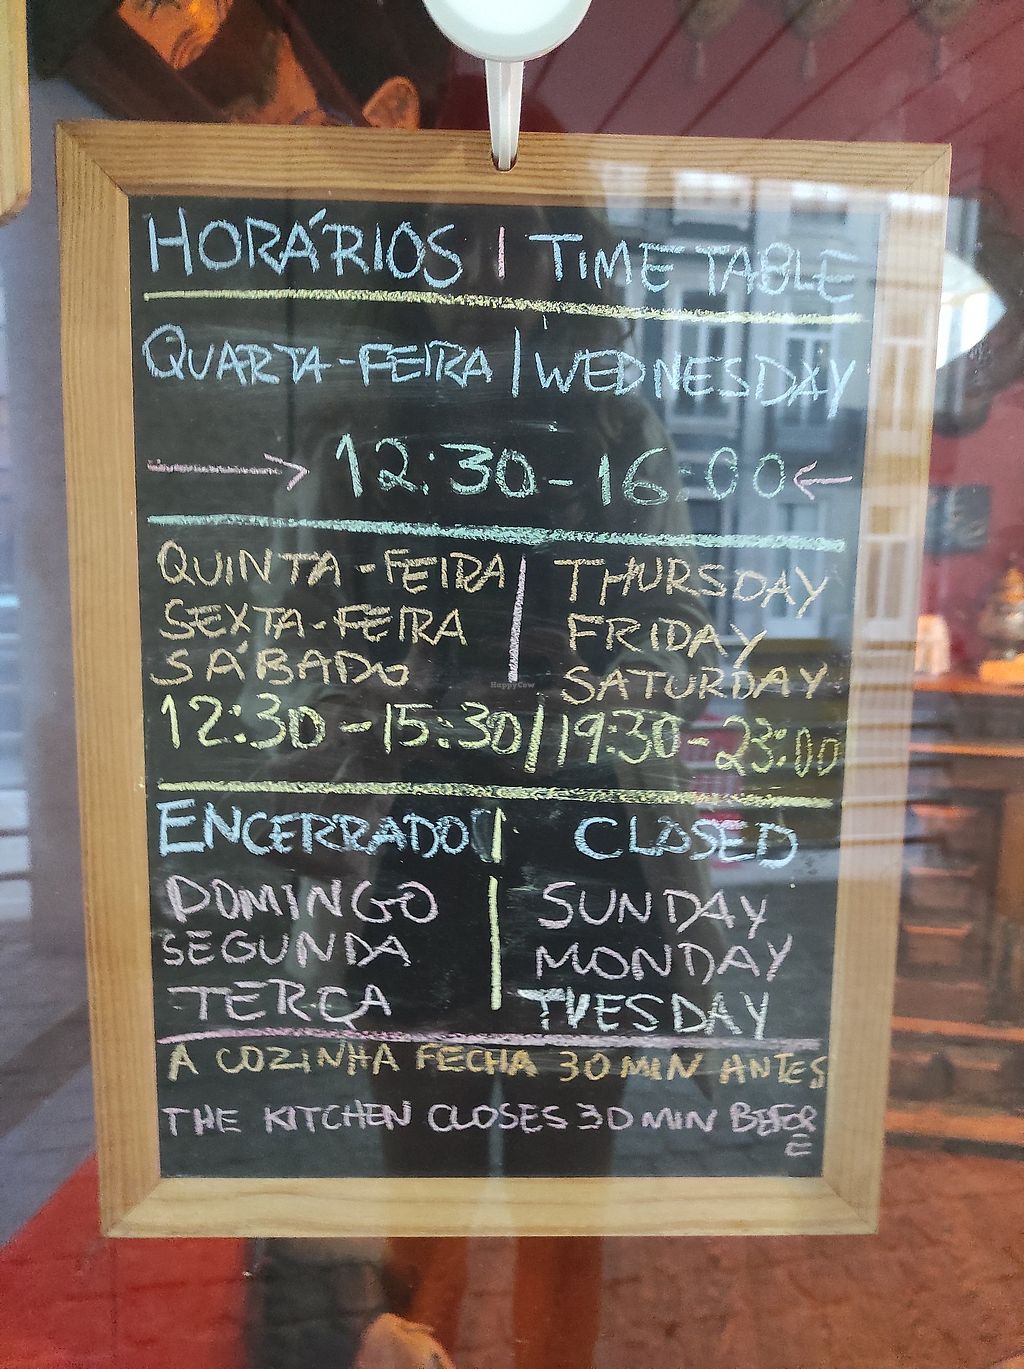 HORÁRIOS | TIME TABLE
QUARTA-FEIRA | WEDNESDAY
→ 12:30 - 16:00 ←
QUINTA-FEIRA | THURSDAY
SEXTA-FEIRA | FRIDAY
SÁBADO | SATURDAY
12:30 - 15:30 / 19:30 - 23:00
ENCERRADO | CLOSED
DOMINGO | SUNDAY
SEGUNDA | MONDAY
TERÇA | TUESDAY
A COZINHA FECHA 30 MIN ANTES
THE KITCHEN CLOSES 30 MIN BEFOR
E
HappyCow